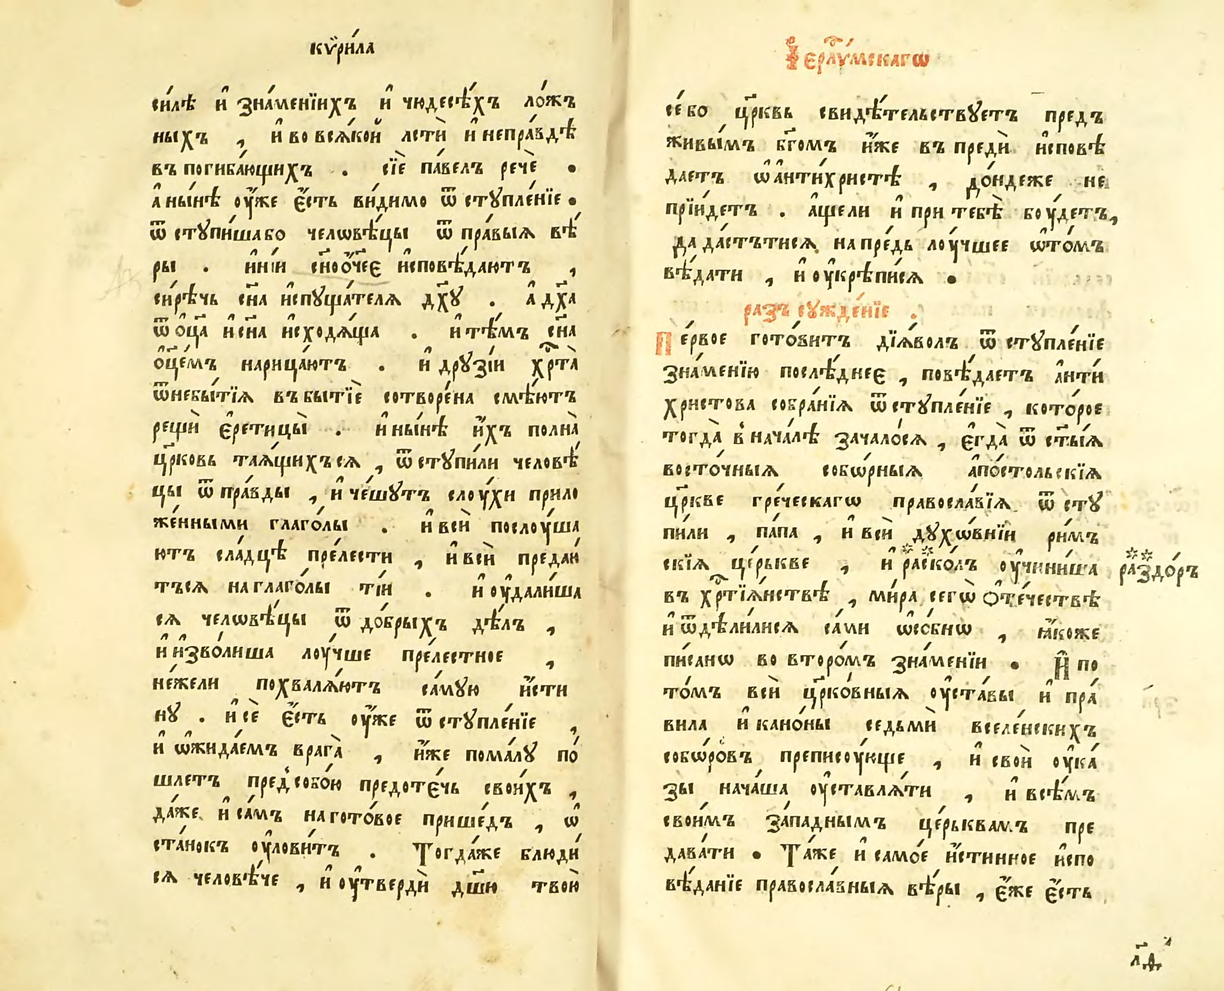 кѷри́ла
си́лѣ и҆ зна́менїихъ и҆ чюдесѣ́хъ ло́жъ
ныхъ , и҆ во всѧ́кой лстѝ и҆ непра́вдѣ
въ погиба́ющихъ . сїѐ па́велъ речѐ .
а҆ ны́нѣ оу҆́же є҆́сть ви́димо ѿ ступле́нїе .
ѿ ступи́ша бо человѣ́цы ѿ пра́выѧ вѣ́
ры . и҆ні́и сн҃оо́ч҃ее и҆сповѣ́даютъ ,
си́рѣчь сн҃а и҆спуща́телѧ дх҃у . а҆ дх҃а
ѿ о҆ц҃а и҆ сн҃а и҆сходѧ́ща . и҆ тѣ́мъ сн҃а
о҆ц҃е́мъ нарица́ютъ . и҆ друзі́и хрⷭ҇та̀
ѿ небытїѧ̀ въ бытїѐ сотворе́на смѣ́ютъ
рещѝ є҆ретицы̀ . и҆ ны́нѣ и҆́хъ полна̀
цр҃ковь таѧ́щихъ сѧ , ѿ ступи́ли человѣ́
цы ѿ пра́вды , и҆ че́шутъ слоу́хи прило
же́нными глаго́лы . и҆ всѝ послоу́ша
ютъ сла́дцѣ пре́лести , и҆ всѝ предаи́
тъсѧ на глаго́лы ті́и . и҆ оу҆дали́ша
сѧ человѣ́цы ѿ до́брыхъ дѣ́лъ ,
и҆ и҆зво́лиша лоу́чше преле́стное ,
не́жели похвалѧ́ютъ са́мую и҆́сти
ну . и҆ сѐ є҆́сть оу҆́же ѿ ступле́нїе ,
и҆ ѡ҆жида́емъ врага̀ , и҆́же пома́лу по́
шлетъ пред̾собо́ю предоте́чь свои́хъ ,
да́же и҆ са́мъ на гото́вое прише́дъ , ѡ҆
ста́нокъ оу҆лови́тъ . Тогда́же блюди́
сѧ человѣ́че , и҆ оу҆твердѝ дш҃ю твою̀
І҆ерⷭ҇лѵ́мскагѡ
се́ бо цр҃квь свидѣ́тельствуетъ предъ
живы́мъ бг҃омъ и҆́же въ предѝ и҆сповѣ́
даетъ ѡ҆ а҆нти́христѣ , до́ндеже не
прїи́детъ . а҆́ще ли и҆ при тебѣ̀ боу́детъ,
да да́стътисѧ на пре́дь лоу́чшее ѡ҆ то́мъ
вѣ́дати , и҆ оу҆крѣ́писѧ .
разъ сужде́нїе .
Пе́рвое гото́витъ дїѧ́волъ ѿ ступле́нїе
зна́менїю послѣ́днее , повѣ́даетъ а҆нти́
христова собра́нїѧ ѿ ступле́нїе , кото́рое
тогда̀ в̾ нача́лѣ зачало́сѧ , є҆гда̀ ѿ ст҃ы́ѧ
восто́чныѧ собо́рныѧ а҆по́стольскїѧ
цр҃кве гре́ческагѡ правосла́вїѧ ѿ сту
пи́ли , па́па , и҆ всѝ духо́внїи ри́мъ
скїѧ це́рькве , и҆ раско́лъ оу҆чини́ша
раздо́ръ
въ хрⷭ҇тїѧ́нствѣ , ми́ра сегѡ̀ о҆те́чествѣ
и҆ ѿдѣли́лисѧ са́ми ѡ҆со́бнѡ , ꙗ҆́коже
пи́санѡ во второ́мъ зна́менїи . И҆ по
то́мъ всѝ цр҃ко́вныѧ оу҆ста́вы и҆ пра́
вила и҆ кано́ны седьмѝ вселе́нскихъ
собо́ровъ преписоу́юще , и҆ своѝ оу҆ка́
зы нача́ша оу҆ставлѧ́ти , и҆ всѣ́мъ
свои́мъ за́паднымъ це́рьквамъ пре
дава́ти . Та́же и҆ само́е и҆́стинное и҆спо
вѣ́данїе правосла́вныѧ вѣ́ры , є҆́же є҆́сть
л҃д